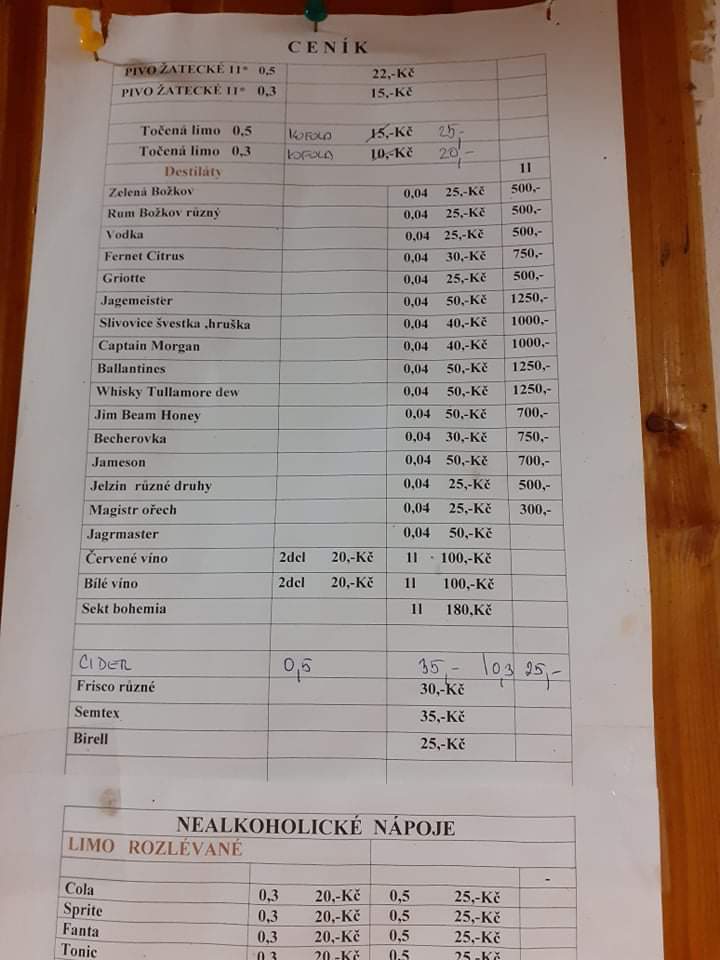 CENÍK
PIVO ŽATECKÉ 11° 0,5 22,-Kč
PIVO ŽATECKÉ 11° 0,3 15,-Kč
Točená limo 0,5 KOFOLA 15,-Kč 25,-
Točená limo 0,3 KOFOLA 10,-Kč 20,-
Destiláty 1l
Zelená Božkov 0,04 25,-Kč 500,-
Rum Božkov různý 0,04 25,-Kč 500,-
Vodka 0,04 25,-Kč 500,-
Fernet Citrus 0,04 30,-Kč 750,-
Griotte 0,04 25,-Kč 500,-
Jagemeister 0,04 50,-Kč 1250,-
Slivovice švestka ,hruška 0,04 40,-Kč 1000,-
Captain Morgan 0,04 40,-Kč 1000,-
Ballantines 0,04 50,-Kč 1250,-
Whisky Tullamore dew 0,04 50,-Kč 1250,-
Jim Beam Honey 0,04 50,-Kč 700,-
Becherovka 0,04 30,-Kč 750,-
Jameson 0,04 50,-Kč 700,-
Jelzin různé druhy 0,04 25,-Kč 500,-
Magistr ořech 0,04 25,-Kč 300,-
Jagrmaster 0,04 50,-Kč
Červené víno 2dcl 20,-Kč 1l 100,-Kč
Bílé víno 2dcl 20,-Kč 1l 100,-Kč
Sekt bohemia 1l 180,Kč
CIDER 0,5 35,- 0,3 25,-
Frisco různé 30,-Kč
Semtex 35,-Kč
Birell 25,-Kč
NEALKOHOLICKÉ NÁPOJE
LIMO ROZLÉVANÉ
-
Cola 0,3 20,-Kč 0,5 25,-Kč
Sprite 0,3 20,-Kč 0,5 25,-Kč
Fanta 0,3 20,-Kč 0,5 25,-Kč
Tonic 0,3 20,-Kč 0,5 25,-Kč